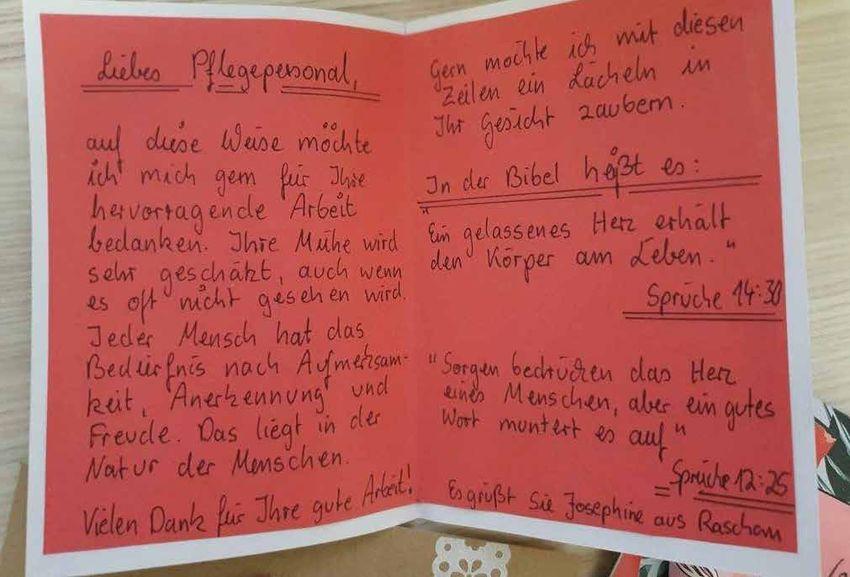 Liebes Pflegepersonal,
auf diese Weise möchte
ich mich gern für Ihre
hervorragende Arbeit
bedanken. Ihre Mühe wird
sehr geschäzt, auch wenn
es oft nicht gesehen wird.
Jeder Mensch hat das
Bedürfnis nach Aufmerksam-
keit, Anerkennung und
Freude. Das liegt in der
Natur der Menschen.
Vielen Dank für Ihre gute Arbeit!
Gern mochte ich mit diesen
Zeilen ein Lächeln in
Ihr Gesicht zaubern.
In der Bibel heißt es:
"Ein gelassenes Herz erhält
den Körper am Leben."
Sprüche 14:30
"Sorgen bedrücken das Herz
eines Menschen, aber ein gutes
Wort muntert es auf"
Sprüche 12:25
Es grüßt Sie Josephine aus